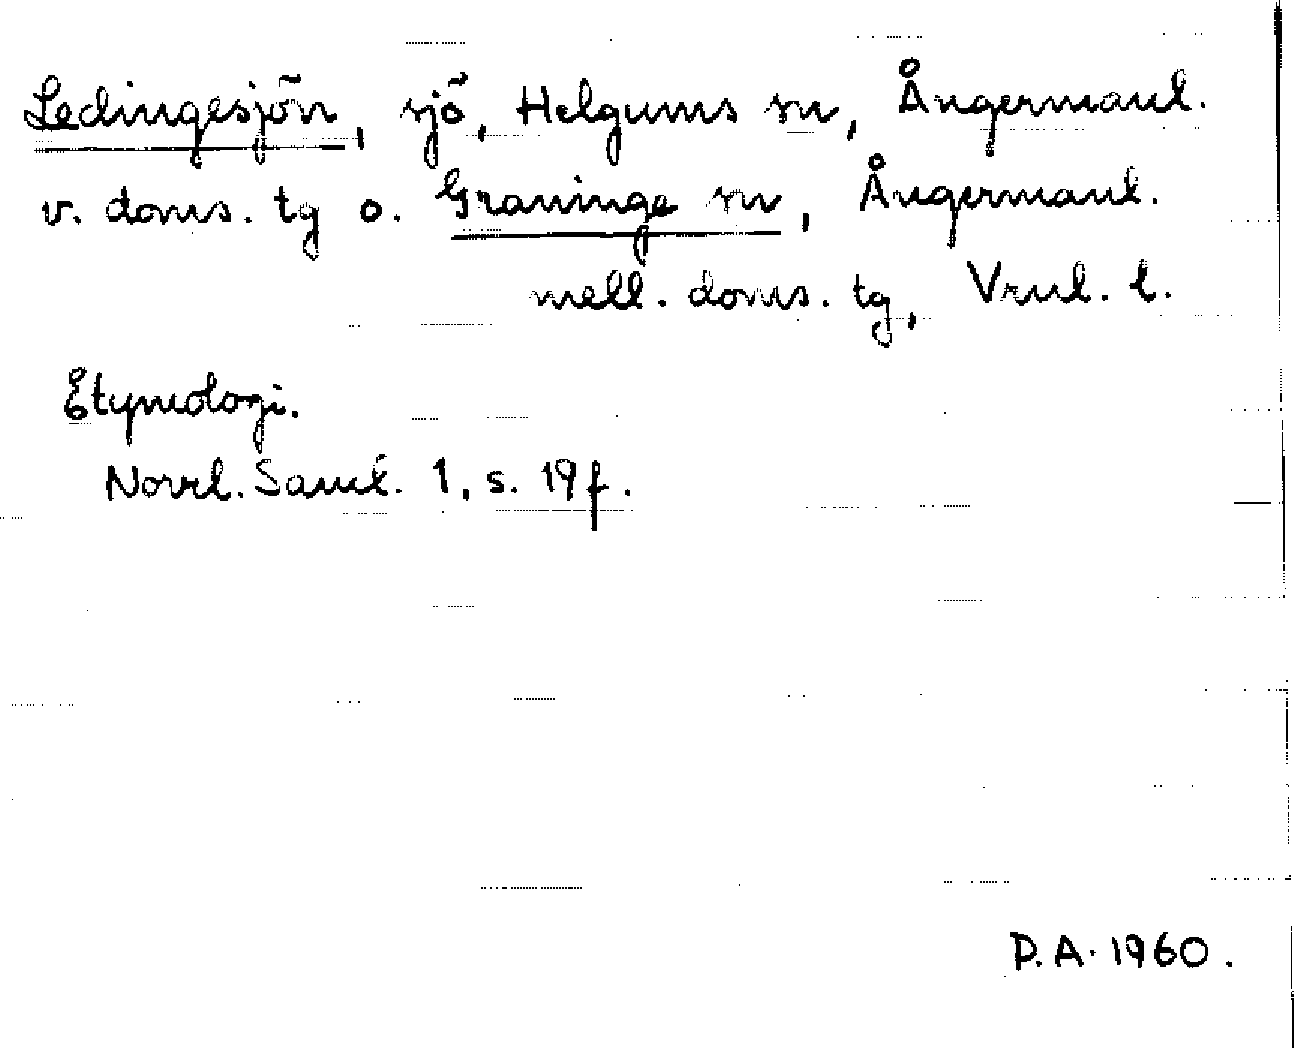 Ledingesjön, sjö, Helgums sn, Ångermanl.
v. doms. tg o. Graninge sn, Ångermanl.
mell. doms. tg, Vrnl. l.
Etymologi.
Norrl. Saml. 1, s. 19f.
D.A. 1960.